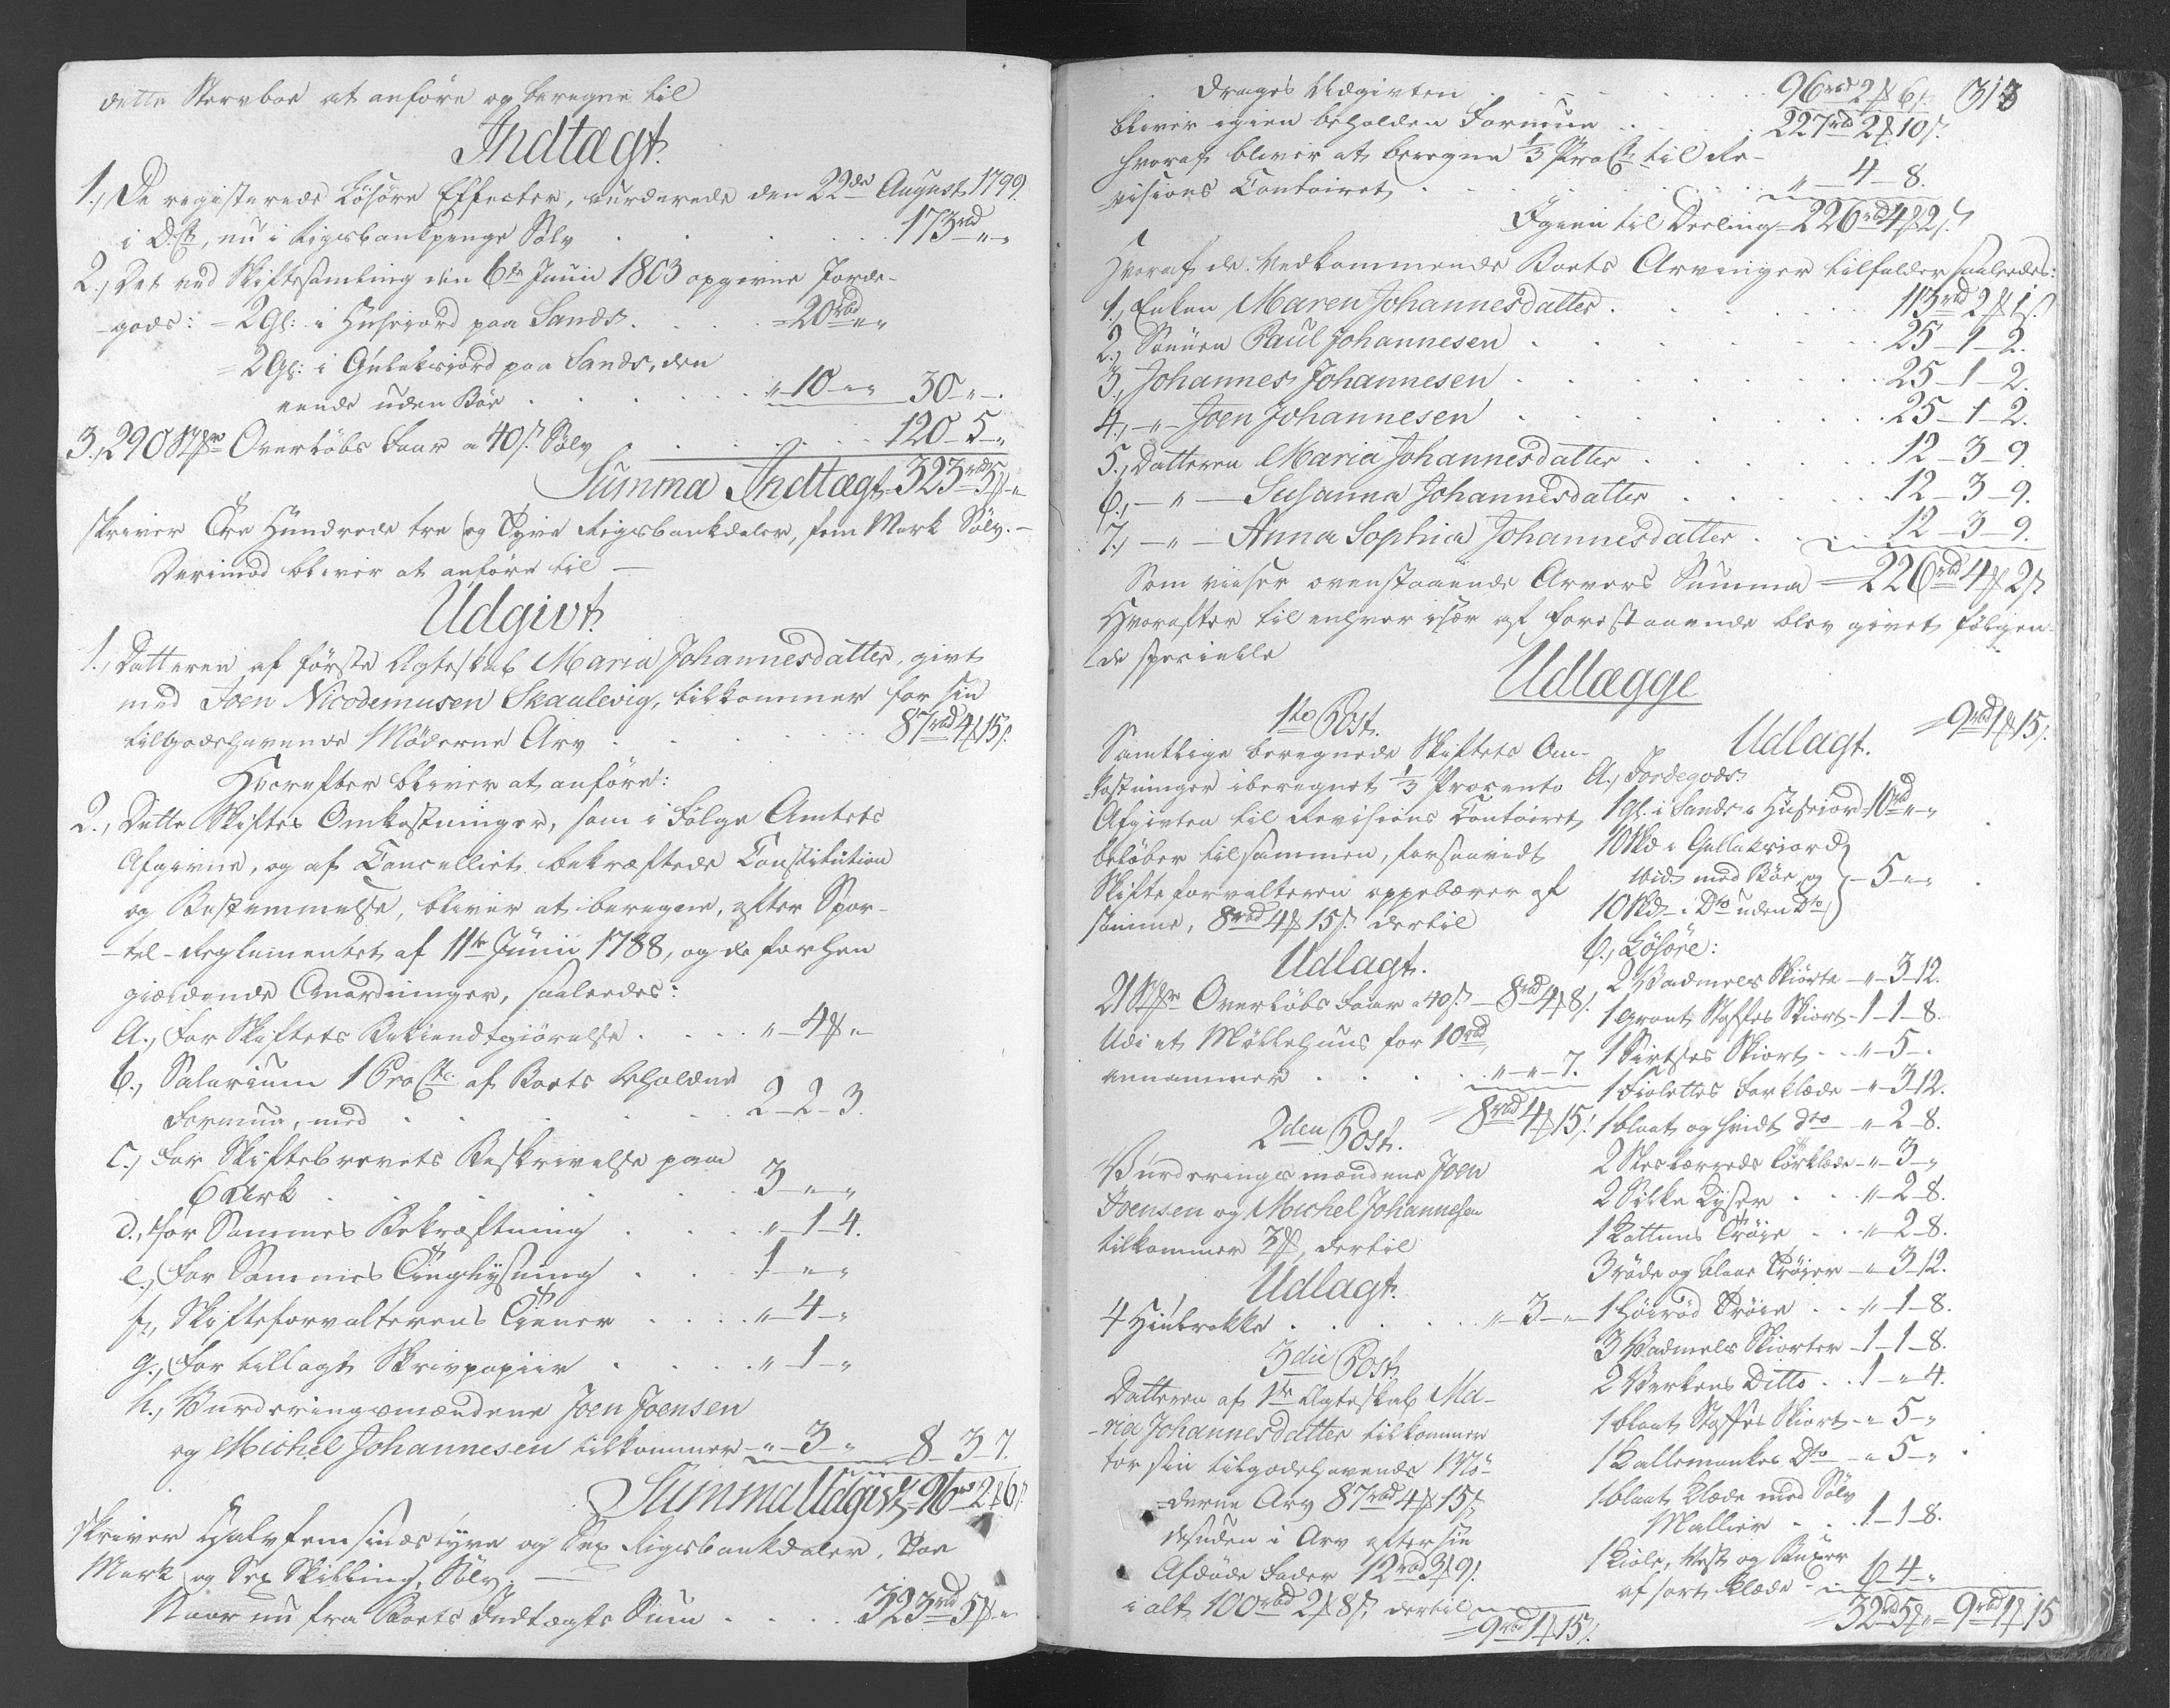 dette Stervboe at anföre og beregne til
Indtægt.
1., De registerede Lösöre Effecter, vurderede den 22de August 1799.
i D. Ct, nu i Rigsbankpenge Sölv . . . . 173 rbd „ „
2., Det ved Skiftesamling den 6te Junii 1803 opgivne Jorde-
-gods: = 2 Gl: i Husejord paa Sands . . . . =20 rbd „ „
= 2 Gl: i Gulaksjord paa Sands, den
eende uden Böe . . . . „ 10 „ „ 30 „ .
3., 290 Overlöbs Faar a 40 s. Sölv . . . . 120 - 5 - „
Summa Indtægt 323 rbd 5 „
skriver Tre Hundrede tre og Tyve Rigsbankdaler, fem Mark Sölv. —
Derimod bliver at anföre til —
Udgivt.
1., Datteren af förste Ægteskab Maria Johannesdatter, givt
med Joen Nicodemusen Skaalevig, tilkommer for sin
tilgodehavende Möderne Arv . . . . 87 rbd 4 15 s.
Hvorefter bliver at anföre:
2., Dette Skiftes Omkostninger, som i Fölge Amtets
Afgivne, og af Cancelliet bekræftede Constitution
og Bestemmelse, bliver at beregne, efter Spor-
-tel-Reglementet af 11te Junii 1788, og de forhen
gieldende Anordninger, saaledes:
a., For Skiftets Bekiendtgiörelse . . . . „ 4 „
b., Salarium 1 ProCto. af Boets beholdne
Formue, med . . . . 2 - 2 - 3.
c., For Skiftebrevets Beskrivelse paa
6 Ark . . . . 3 - „ - „
d., for Sammes Bekræftning . . . „ - 1 - 4.
e., For Sammes Tinglysning . . . 1 - „ - „
f., Skifteforvalterens Tiener . . . . „ - 4 - „
g., For tillagt Skrivpapiir . . . . „ - 1 - „
h., Vurderingsmændene Joen Joensen
og Michel Johannesen tilkommer - „ - 3 - „ 8 - 3 - 7.
Summa Udgivt 96 rbd 2 6 s.
skriver Halvfemsinstyve og Sex Rigsbankdaler, Toe
Mark og Sex Skilling, Sölv. —
Naar nu fra Boets Indtægts Sum . . . . 323 rbd 5 „
313
drages Udgivten . . . . 96 rbd 2 6 s.
bliver igien beholden Formue . . . . 227 rbd 2 10 s.
hvoraf bliver at beregne 1/3 ProCto til Re-
-visions Contoiret . . . . „ - 4 - 8.
Igien til Deeling = 226 rbd 4 2 s.
Hvoraf de Vedkommende Boets Arvinger tilfalder saaledes:
1., Enken Maren Johannesdatter . . . . 113 rbd 2 1 s.
2., Sönnen Paul Johannesen . . . . 25 - 1 - 2.
3., Johannes Johannesen . . . . 25 - 1 - 2.
4., - „ - Joen Johannesen . . . . 25 - 1 - 2.
5., Datteren Maria Johannesdatter . . . . 12 - 3 - 9.
6., - „ - Susanna Johannesdatter . . . . 12 - 3 - 9.
7., - „ - Anna Sophia Johannesdatter . . . 12 - 3 - 9.
Som viiser ovenstaaende Arvers Summa = 226 rbd 4 2 s
Hvorefter til enhver især af forestaaende blev givet fölgen-
-de specielle
Udlægge
1te Post.
Samtlige beregnede Skiftets Om-
-kostninger iberegnet 1/3 Procento
Afgivten til Revisions Contoiret,
belöber tilsammen, forsaavidt
Skifteforvalteren oppebærer af
samme, 8 rbd 4 15 s. dertil
Udlagt.
21 Overlöbs Faar a 40 s. — 8 rbd 4 8 s.
Udi et Möllehuus for 10 rbd,
annammer . . . . „ - „ - 7.
= 8 rbd 4 15 s.
2den Post.
Vurderingsmændene Joen
Joensen og Michel Johannesen
tilkommer 3, dertil
Udlagt.
4 Hiulrokke . . . . „ - 3 - „
3die Post.
Datteren af 1te Ægteskab Ma-
-ria Johannesdatter tilkommer
for sin tilgodehavende Mö-
=derne Arv 87 rbd 4 15 s,
desuden i Arv efter sin
Afdöde Fader 12 rbd 3 9 s.
i alt 100 rbd 2 8 s, dertil
= 9 rbd 1 15 s.
= 9 rbd 1 15 s.
Udlagt.
a., Jordegods:
1 gl. i Sands i Husejord 10 rbd „ „
10 Skd i Gullaksiord
med Böe og
10 Skd i Dto uden Dto } - 5 - „ - „
b., Lösöre:
2 Vadmels Skiörte - „ - 3 - 12.
1 grönt Stoffes Skiört - 1 - 1 - 8.
1 Sirtses Skiört . . „ - 5 - .
1 Fiolettes Forklæde - „ - 3 - 12.
1 blaat og hvidt dto - „ - 2 - 8.
2 Törklæde - „ - 3 - „
2 Silke Lyser . . . „ - 2 - 8.
1 Kattuns Tröie . . „ - 2 - 8.
3 röde og blaae Tröier - „ - 3 - 12.
1 höiröd Tröie . . „ - 1 - 8.
3 Vadmels Skiorter - 1 - 1 - 8.
2 Verkens Ditto . . 1 - „ - 4.
1 blaat Stoffes Skiört - „ 5 - „
1 Kallemankes Dto - „ 5 - „
1 blaat Klæde med Sölv
Mallier . . 1 - 1 - 8.
1 Kiole, Vest og Buxer
af sort Klæde - 6 - 4 - „
= 32 rbd 5 „ = 9 rbd 1 15